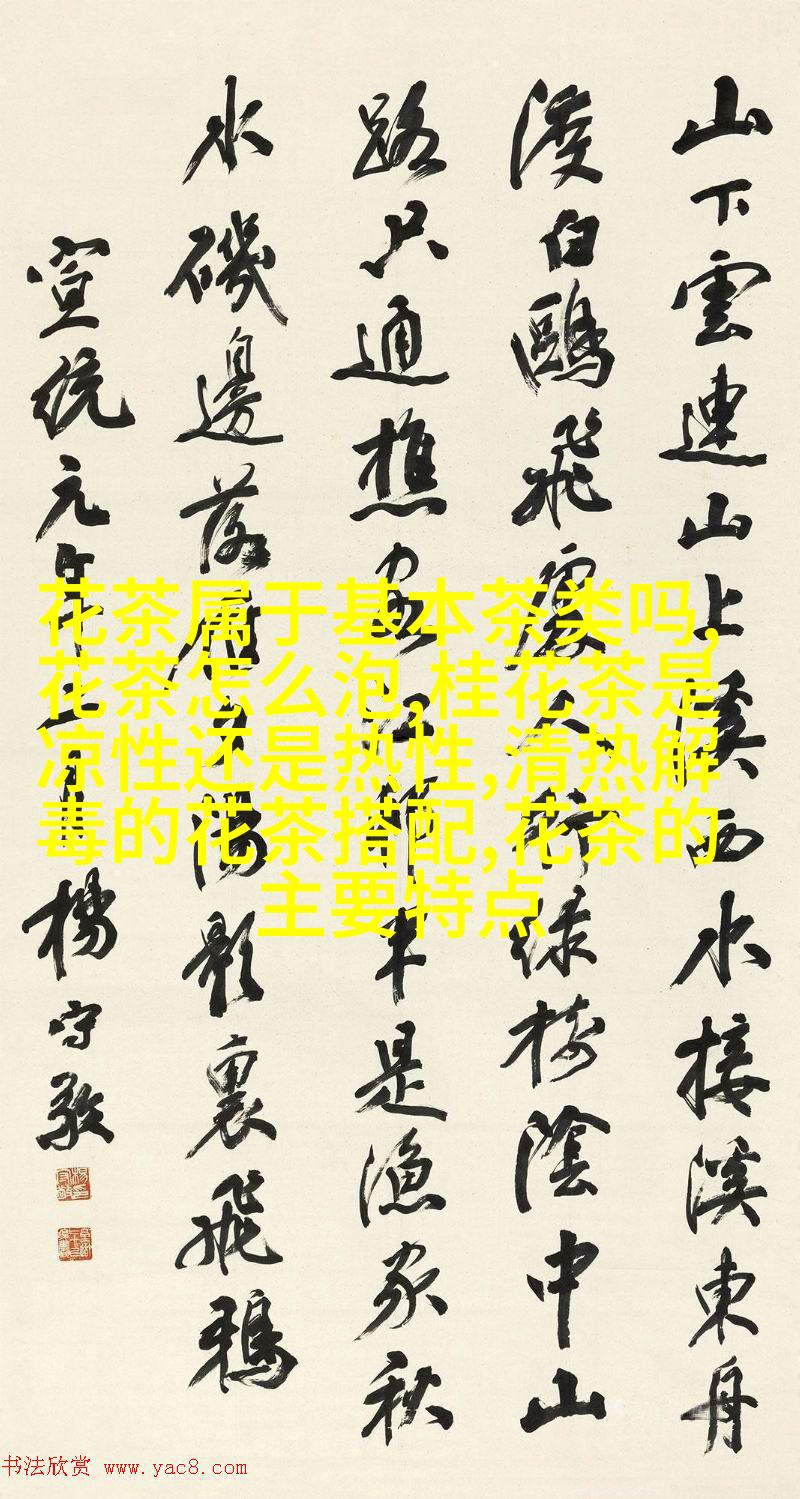 山下雲連山上溪西水接溪東舟
渡白鷗飛處人行綠樹陰中山
路只通樵客江村半是漁家秋
水磯邊落雁夕陽影裏飛鴉
宣統元年月楊守敬
花茶属于基本茶类吗,
花茶怎么泡,桂花茶是
凉性还是热性,清热解
毒的花茶搭配,花茶的
主要特点
书法欣赏 www.yac8.com